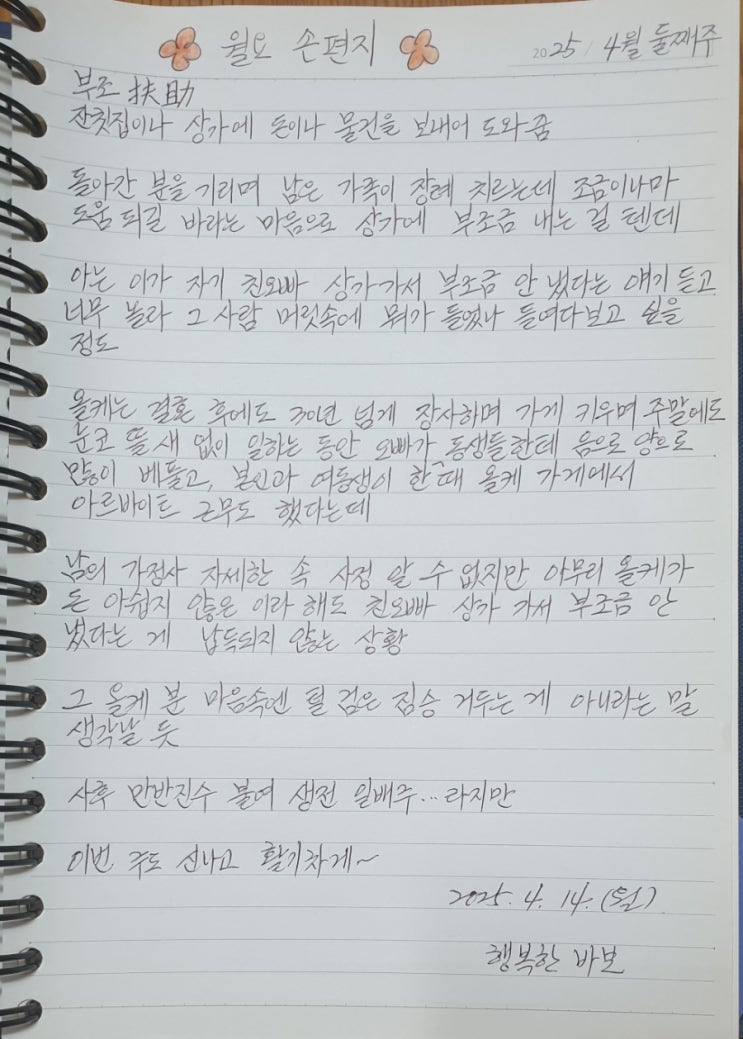 월요 손편지
2025 / 4월 둘째주
부조 扶助
잔칫집이나 상가에 돈이나 물건을 보내어 도와줌
돌아간 분을 기리며 남은 가족이 장례 치르는데 조금이나마
도움 되길 바라는 마음으로 상가에 부조금 내는 걸 텐데
아는 이가 자기 친오빠 상가 가서 부조금 안 냈다는 얘기 듣고
너무 놀라 그 사람 머릿속에 뭐가 들었나 들여다보고 싶을
정도
올케는 결혼 후에도 30년 넘게 장사하며 가게 키우며 주말에도
눈코 뜰 새 없이 일하는 동안 오빠가 동생들한테 음으로 양으로
많이 베풀고, 본인과 여동생이 한때 올케 가게에서
아르바이트 근무도 했다는데
남의 가정사 자세한 속 사정 알 수 없지만 아무리 올케가
돈 아쉽지 않은 이라 해도 친오빠 상가 가서 부조금 안
냈다는 게 납득되지 않는 상황
그 올케 분 마음속엔 털 검은 짐승 거두는 게 아니라는 말
생각날 듯
사후 만반진수 불여 생전 일배주...라지만
이번 주도 신나고 활기차게~
2025. 4. 14. (월)
행복한 바보